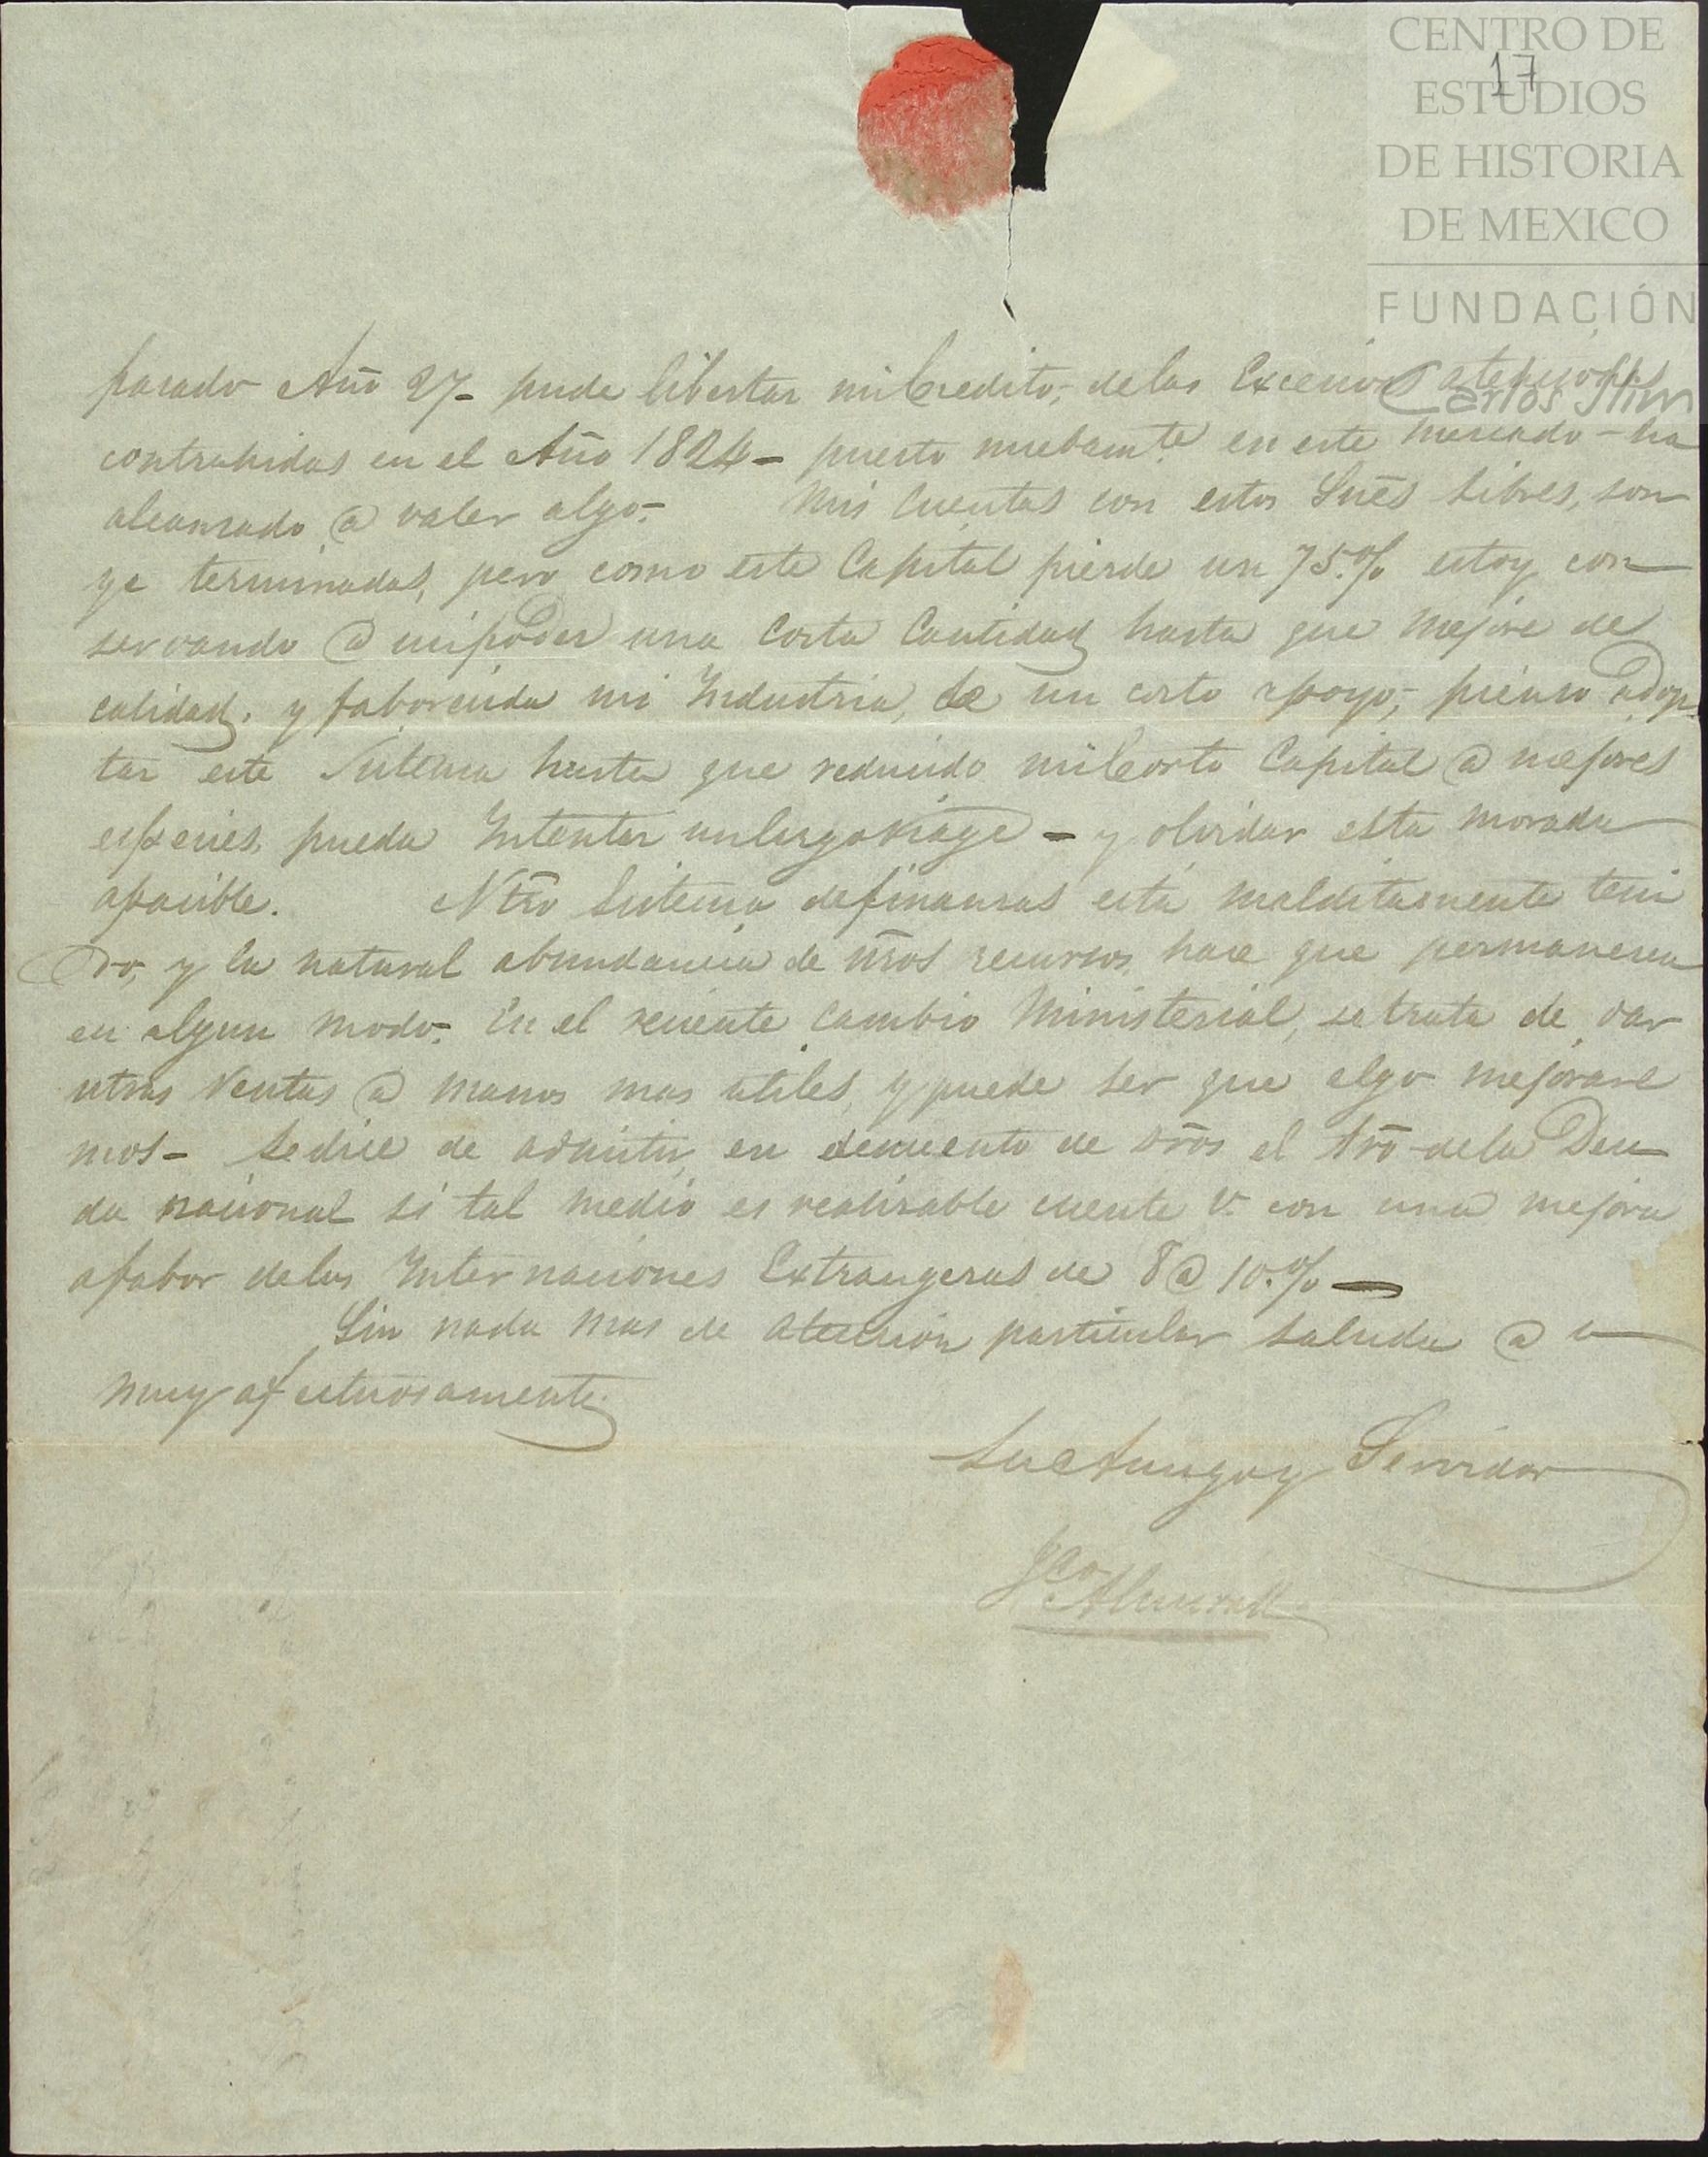 CENTRO DE
ESTUDIOS
DE HISTORIA
DE MEXICO
FUNDACIÓN
Carlos Slim
17
pasado Año 27- pude libertar mi Credito, de las Excecivas atenciones
contrahidas en el Año 1824- puesto nuebamte en este mercado - ha
alcansado @ valer algo.- Mis Cuentas con estos Libres, son
ya terminadas, pero como este Capital pierde un 75.% estoy con
servando @ mi poder una Corta Cantidad hasta que mejore de
calidad, y faborecida mi Industria, de un corto apoyo, pienso adop
tar este Sistema hasta que reducido mi Corto Capital @ mejores
especies, pueda Intentar un largo viage - y olvidar esta morada
apacible. Ntro Sistema de finansas está malditamente teni
do, y la natural abundancia de nros recursos, hace que permanesca
en algun modo.- En el reciente Cambio Ministerial, se trata de dar
ntras Rentas @ manos mas utiles, y puede ser que algo mejorare
mos- se dice de admitir, en descuento de dros el de la Deu
da nacional si tal medio es realisable cuente V. con una mejora
afabor de las Internaciones Extrangeras de 8 @ 10.% —
Sin nada mas de atencion particular saluda @ v
muy afectuosamente
Su Amigo y Servidor